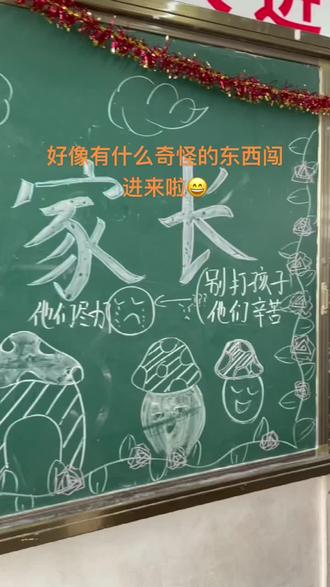 进
好像有什么奇怪的东西闯
进来啦😄
家长
别打孩子
他们尽力
他们辛苦